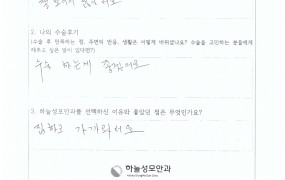 2. 나의 수술후기
(수술 후 만족하는 점, 주변의 반응, 생활은 어떻게 바뀌었나요? 수술을 고민하는 분들에게
해주고 싶은 말이 있다면?)
수술 하는게 좋습니다
3. 하늘성모안과를 선택하신 이유와 좋았던 점은 무엇인가요?
집하고 가까워서요
하늘성모안과